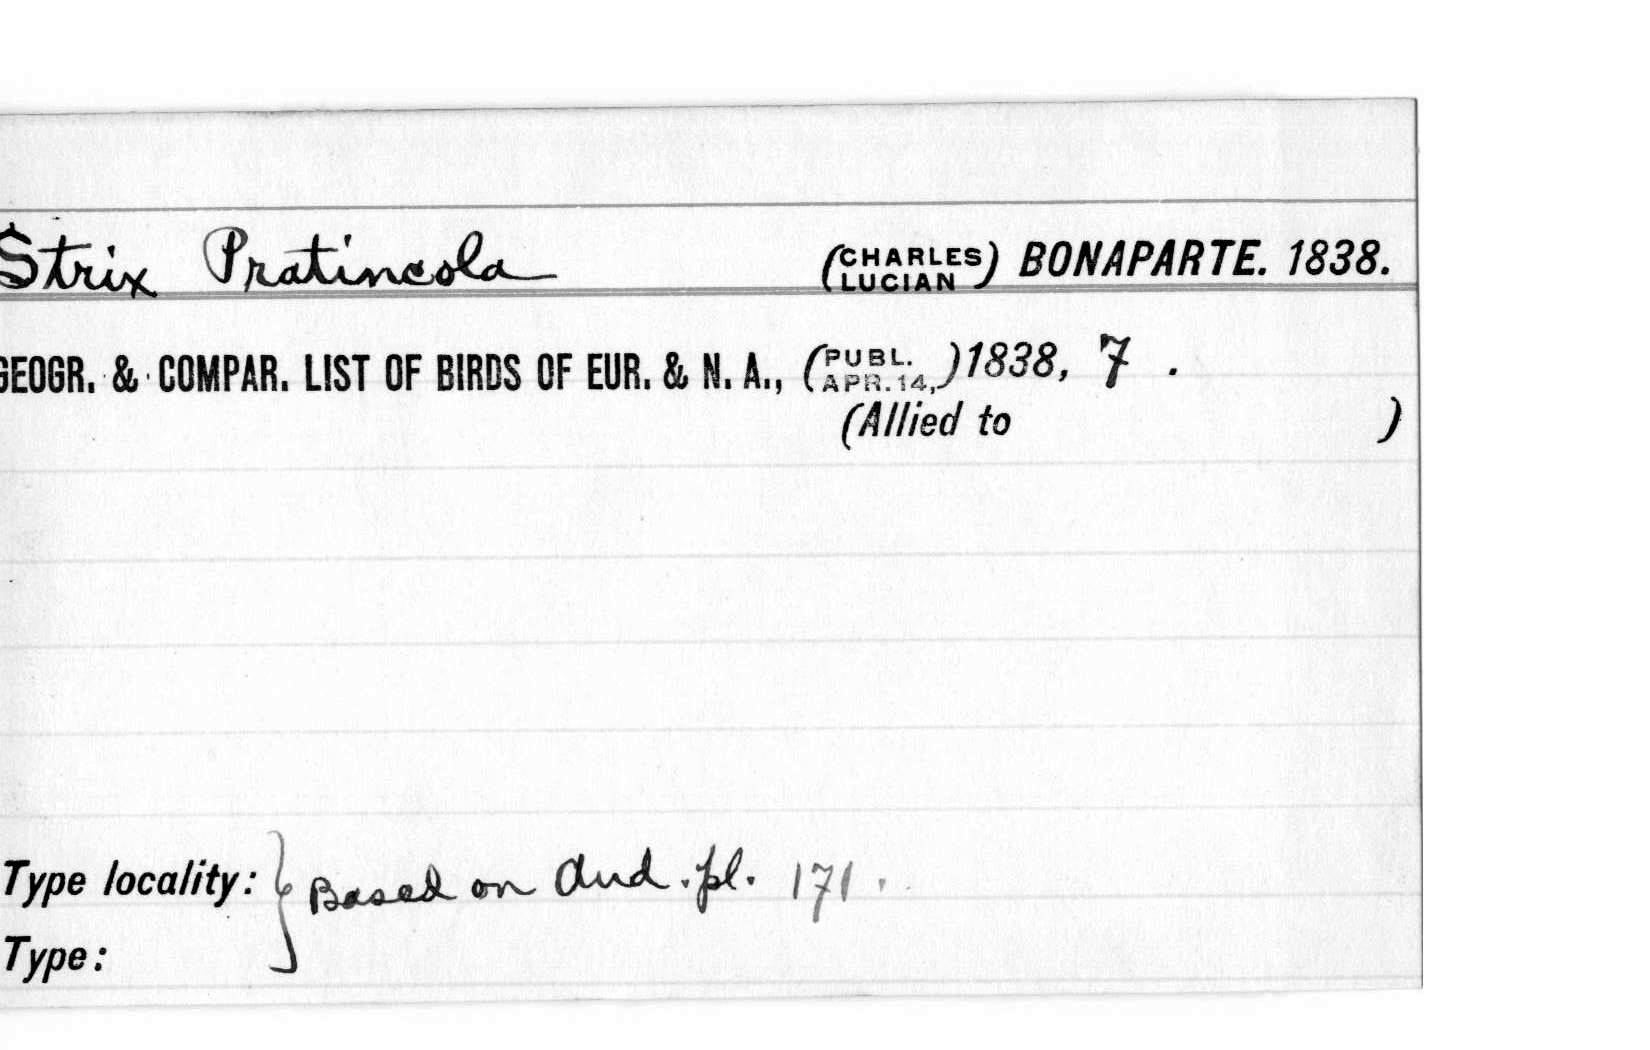 Strix Pratincola (CHARLES LUCIAN) BONAPARTE. 1838.
GEOGR. & COMPAR. LIST OF BIRDS OF EUR. & N. A., (PUBL. APR. 14,) 1838, 7.
(Allied to )
Type locality: } Based on Aud. pl. 171.
Type: